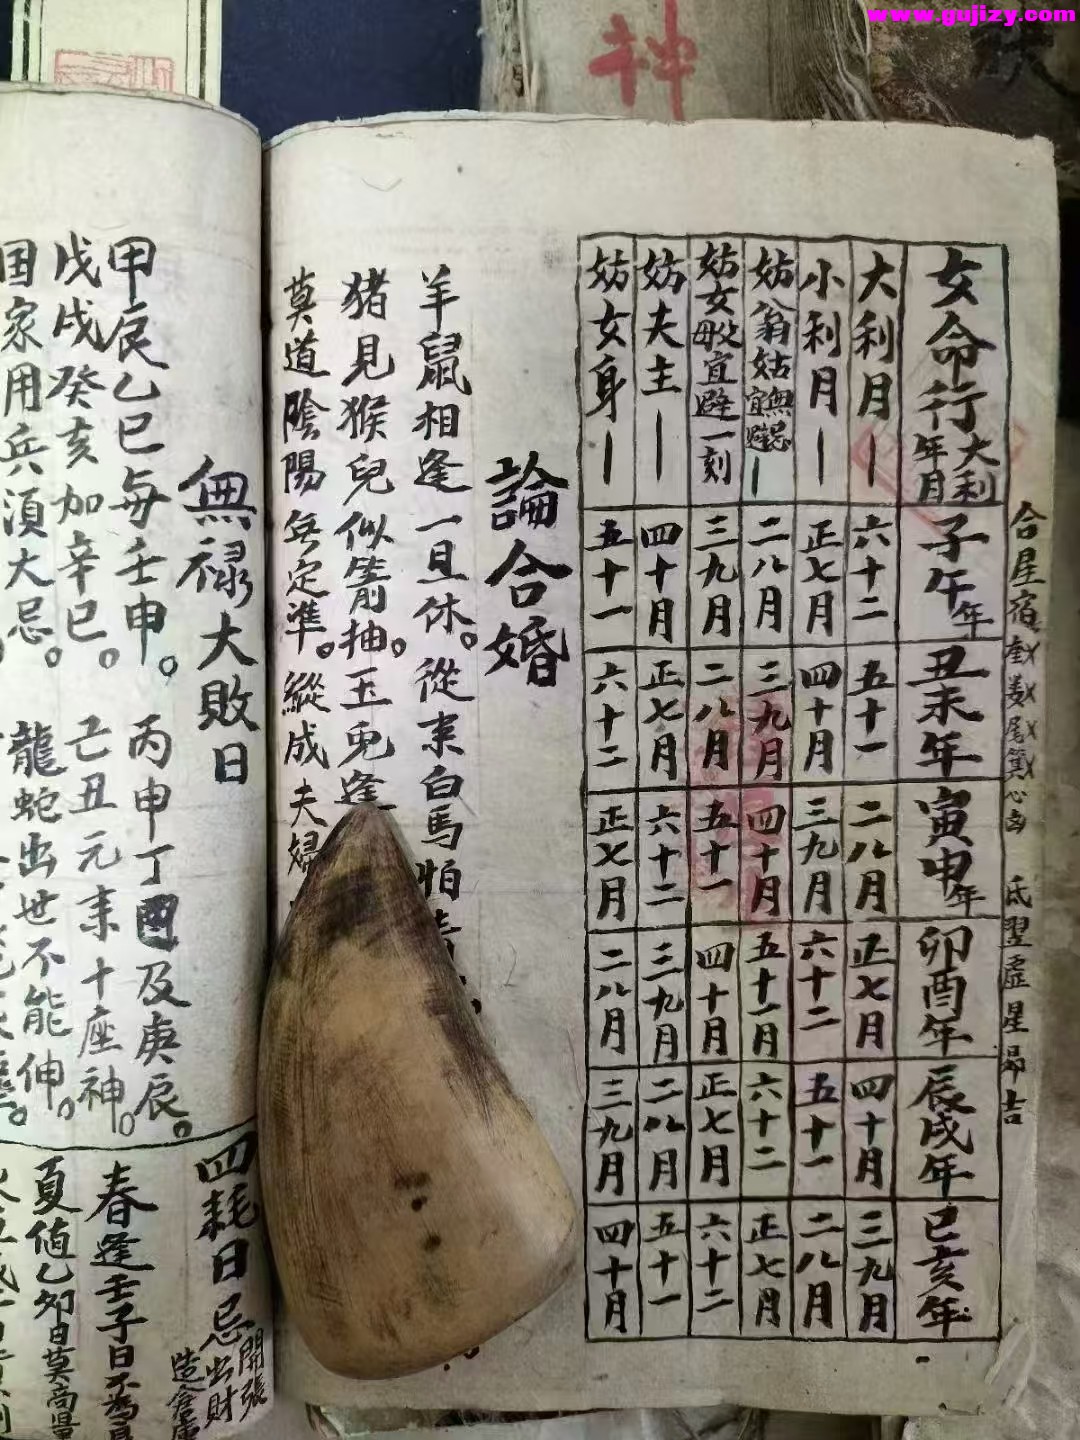 www.gujizy.com
神
合星宿
心 氐翌虛星昴吉
女命行大利年月
子午年
丑未年
寅申年
卯酉年
辰戌年
巳亥年
大利月
六十二
五十一
二八月
正七月
四十月
三九月
小利月
正七月
四十月
三九月
六十二
五十一
二八月
妨翁姑無忌宜避
二八月
三九月
四十月
五十一月
六十二
正七月
妨女母宜避一刻
三九月
二八月
五十一
四十月
正七月
六十二
妨夫主
四十月
正七月
六十二
三九月
二八月
五十一
妨女身
五十一
六十二
正七月
二八月
三九月
四十月
論合婚
羊鼠相逢一旦休。從来白馬怕
猪見猴兒似箭抽。玉兎逢
莫道陰陽無定準。縱成夫婦
無禄大敗日
甲辰乙巳每壬申。丙申丁國及庚辰。
戊戌癸亥加辛巳。己丑元来十座神。
国家用兵須大忌。龍蛇出世不能伸。
四耗日忌開張出財造倉庫
春逢壬子日不為
夏値乙夘日莫高